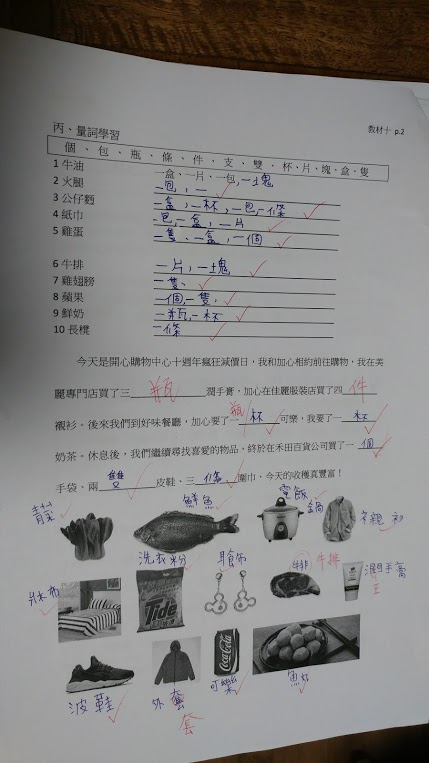 教材十 p.2
丙、量詞學習
個、包、瓶、條、件、支、雙、杯、片、塊、盒、隻
1 牛油 一盒、一片、一包、一塊
2 火腿 一包,一
3 公仔麵 一盒,一杯,一包,一條
4 紙巾 一包,一盒,一片
5 雞蛋 一隻、一盒、一個
6 牛排 一片,一塊
7 雞翅膀 一隻、
8 蘋果 一個,一隻、
9 鮮奶 一瓶,一杯
10 長櫈 一條
今天是開心購物中心十週年瘋狂減價日,我和加心相約前往購物,我在美
麗專門店買了三 瓶 潤手膏,加心在佳麗服裝店買了四 件
瓶
襯衫。後來我們到好味餐廳,加心要了一 杯 可樂,我要了一 杯
奶茶。休息後,我們繼續尋找喜愛的物品,終於在禾田百貨公司買了一 個
手袋、兩 雙 皮鞋、三 條 圍巾,今天的收穫真豐富!
菜 鮮魚 電飯鍋 襯衫
床布 洗衣粉 耳飾 牛排 潤手膏
Tide
Coca-Cola
波鞋 外套 可樂 魚
套